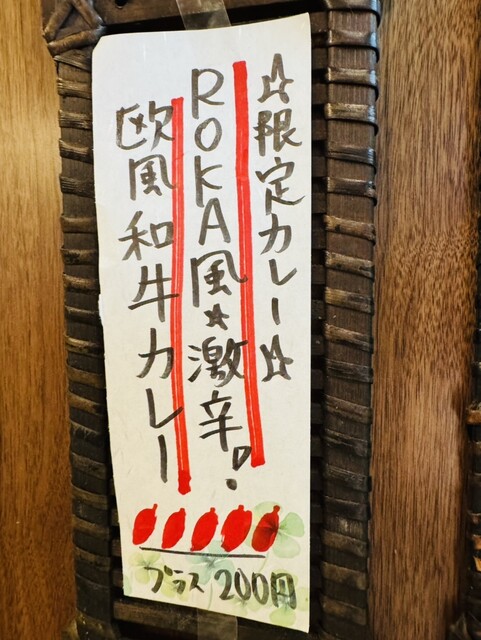 ☆限定カレー☆
ROKA風☆激辛!
欧風和牛カレー
プラス 200円